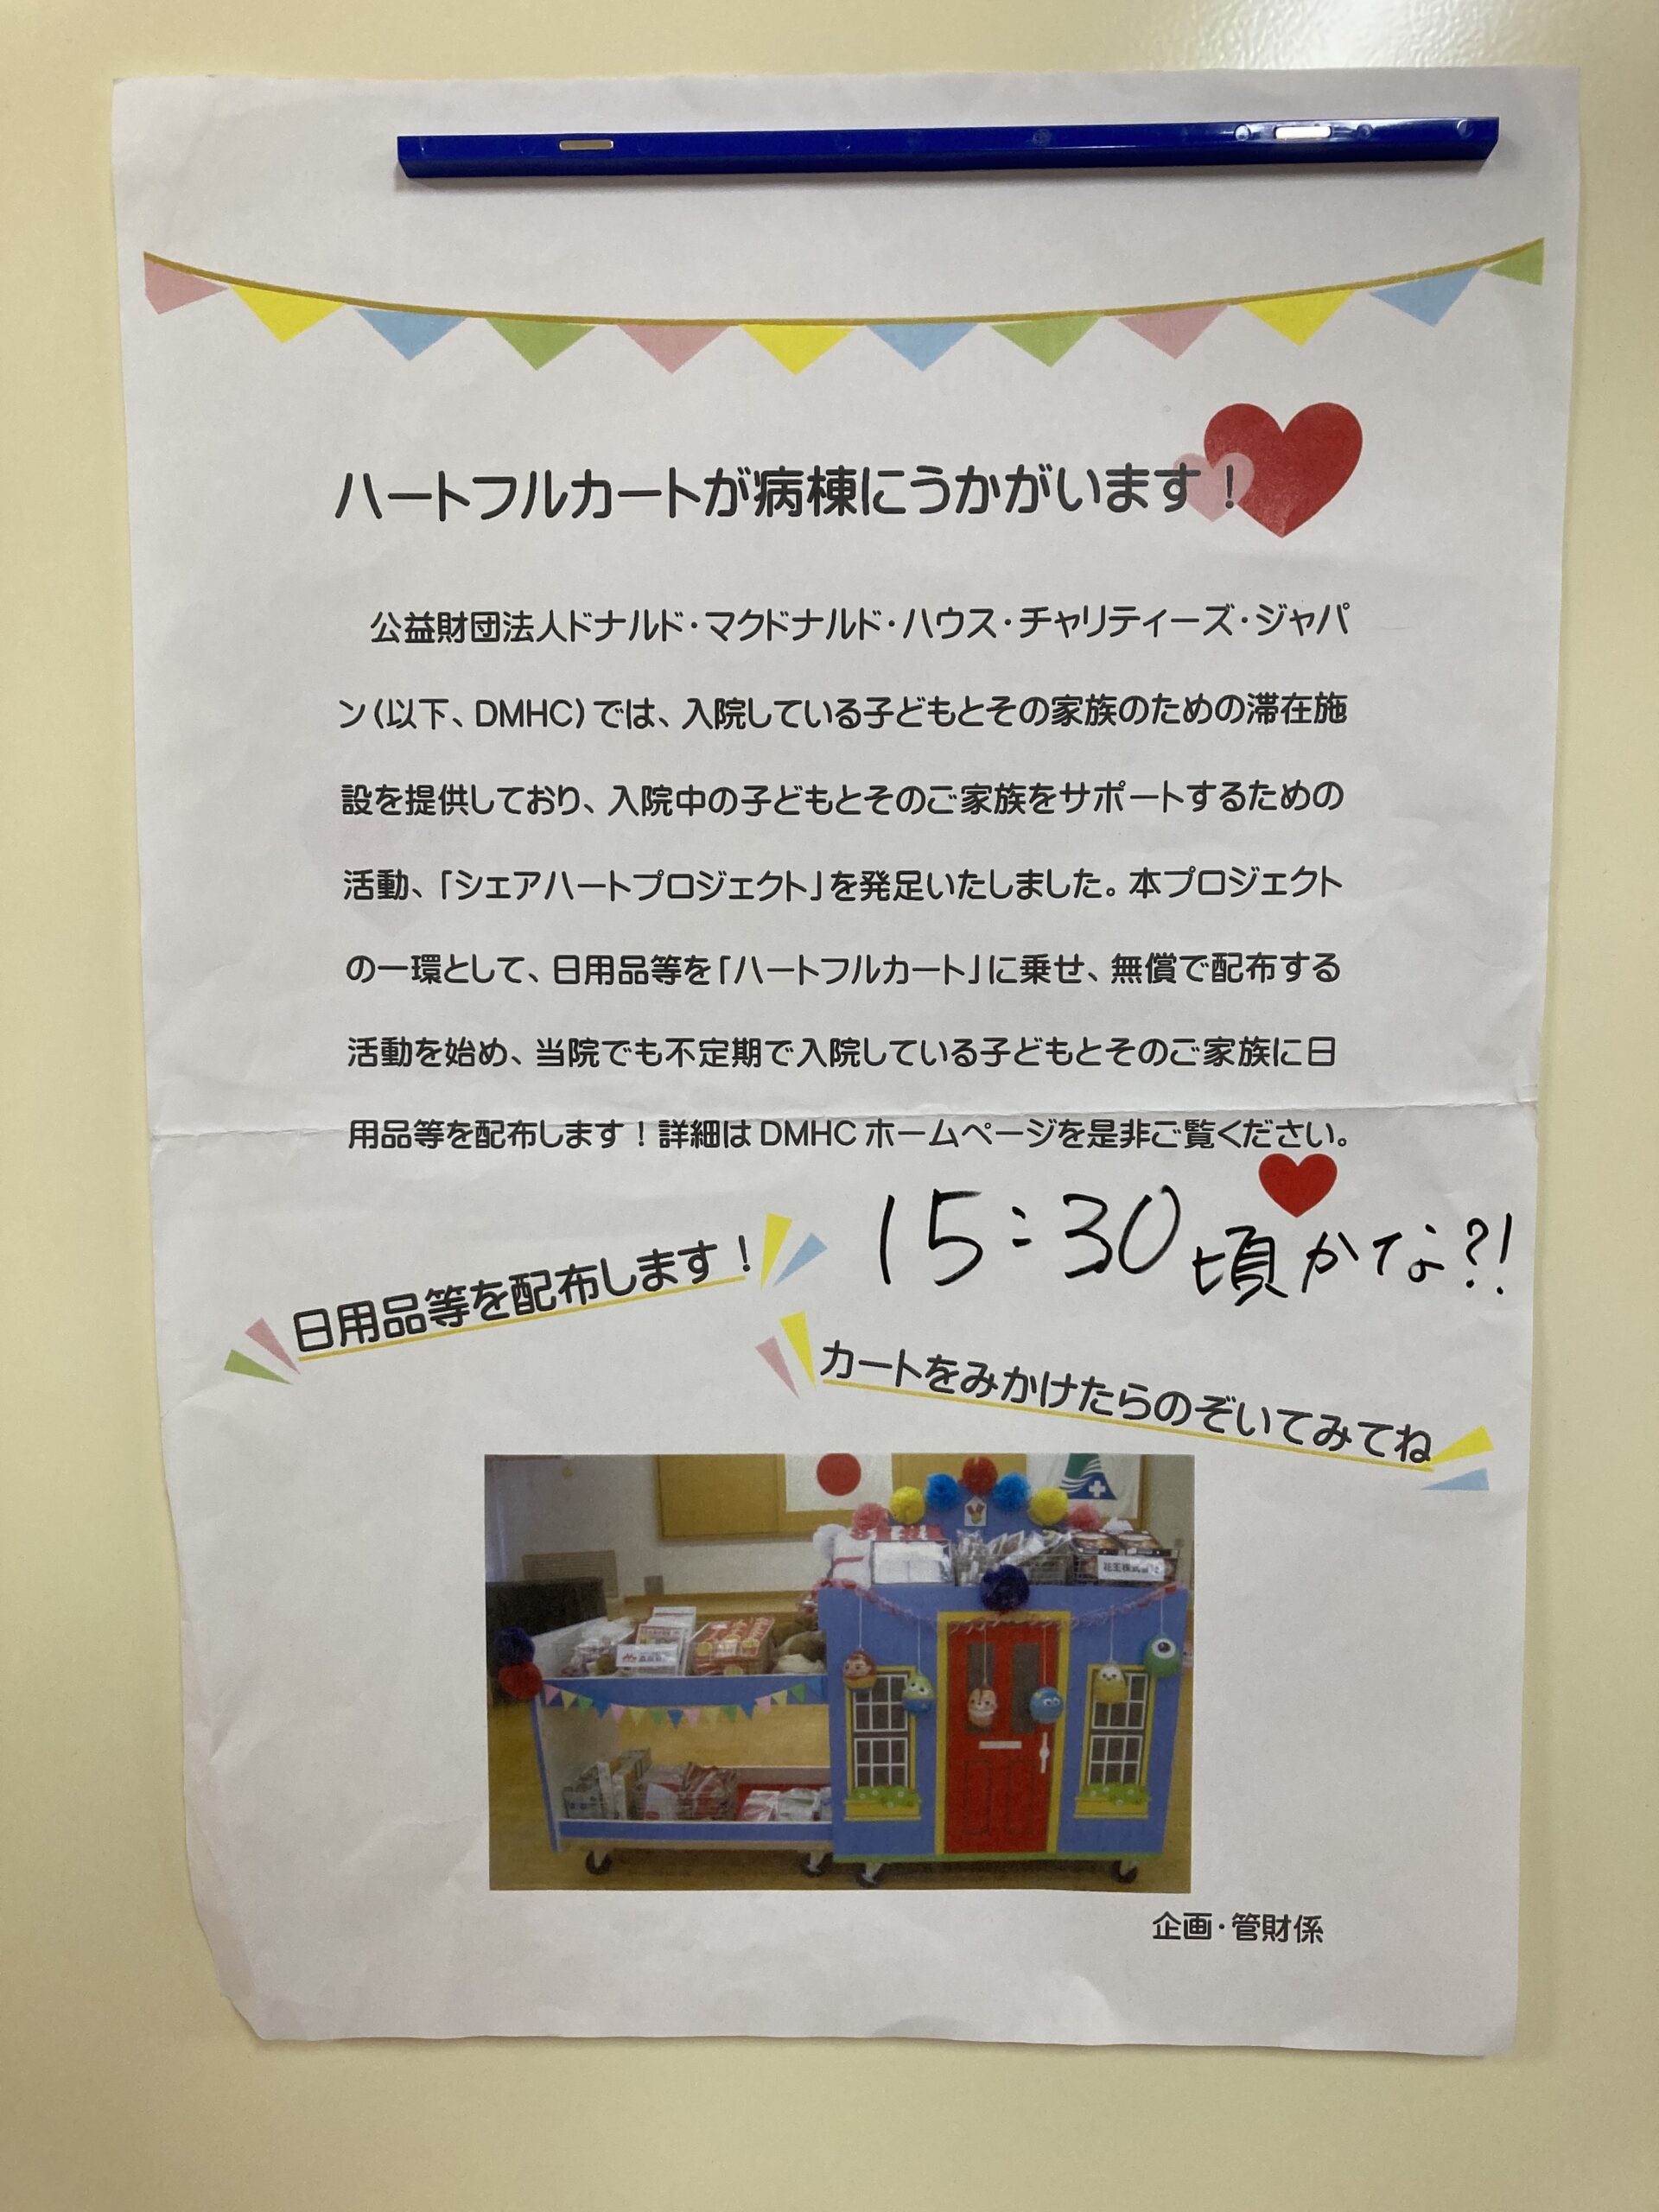 ハートフルカートが病棟にうかがいます！
公益財団法人ドナルド・マクドナルド・ハウス・チャリティーズ・ジャパ
ン（以下、DMHC）では、入院している子どもとその家族のための滞在施
設を提供しており、入院中の子どもとそのご家族をサポートするための
活動、「シェアハートプロジェクト」を発足いたしました。本プロジェクト
の一環として、日用品等を「ハートフルカート」に乗せ、無償で配布する
活動を始め、当院でも不定期で入院している子どもとそのご家族に日
用品等を配布します！詳細は DMHC ホームページを是非ご覧ください。
15:30 頃かな?!
日用品等を配布します！
カートをみかけたらのぞいてみてね
企画・管財係